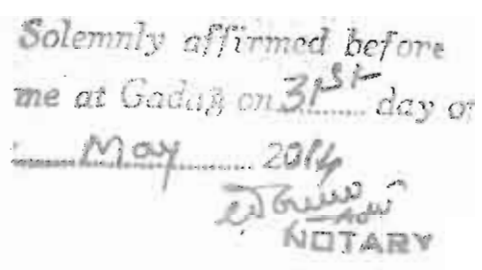 Solemnly affirmed before
me at Gadag on 31st day of
May 2014
NOTARY